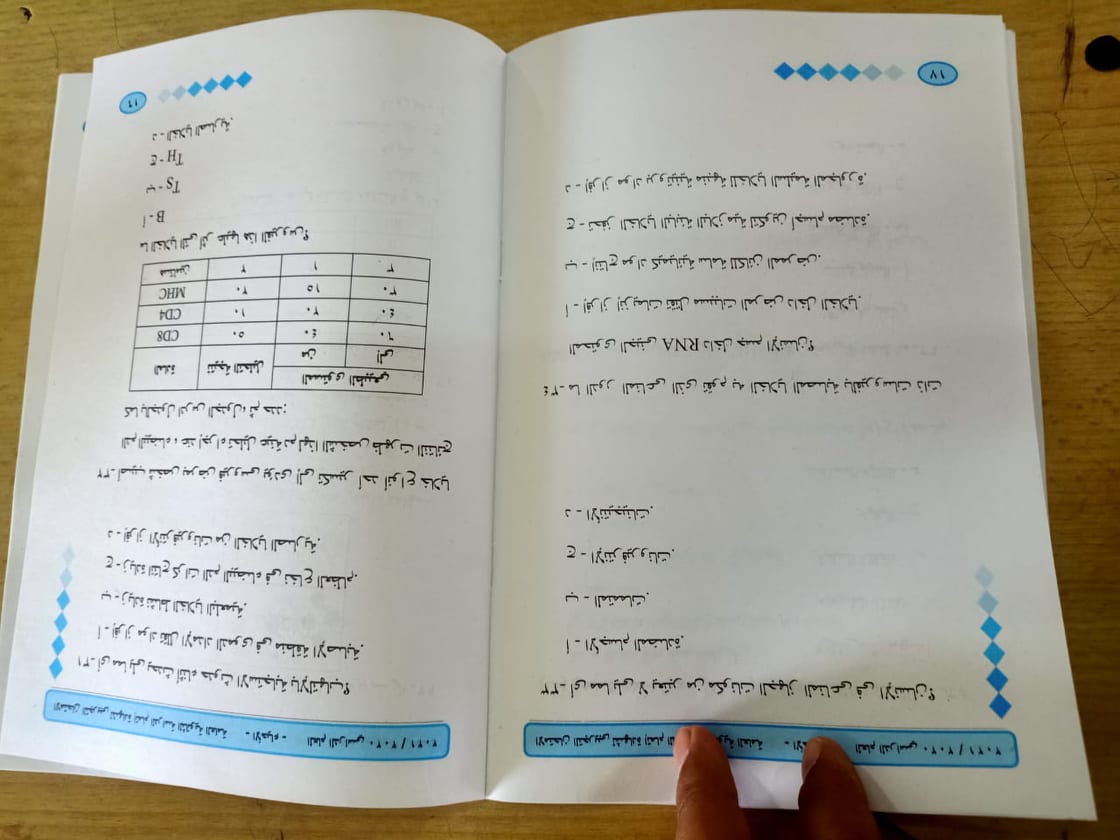 الامتحان التجريبى لشهادة إتمام الدراسة الثانوية العامة - الأحياء - العام الدراسي ٢٠٢٠ / ٢٠٢١
٣١- أى مما يلى يحدث أثناء حدوث الاستجابة بالإلتهاب؟
أ - إفراز مواد تقلل الإمداد الدموى فى منطقة الإصابة.
ب - زيادة نشاط الخلايا البلعمية.
ج - زيادة انتاج كرات الدم البيضاء فى نخاع العظام.
د - إفراز الأنترفيرونات من الخلايا الصارية.
٣٢- أصيب شخص بمرض فيروسى يؤدى إلى تكسير أحد أنواع خلايا
الدم البيضاء ، عند إجراء تحليل عينة دم لهذا الشخص ظهرت النتائج
كما بالجدول ادرس الجدول، ثم حدد:
المادة نتيجة التحليل المستوى الطبيعي
من إلى
CD8 ٥٠ ٤٠ ٦٠
CD4 ١٠ ٢٠ ٤٠
MHC ٢٠ ١٥ ٣٠
هستامين ٢ ١ ٣
ما الخلايا التى أثر عليها هذا الفيروس؟
أ - B
ب - TS
ج - TH
د - الخلايا الصارية.
١٦
الامتحان التجريبى لشهادة إتمام العامة العام الدراسي ٢٠٢٠ / ٢٠٢١
٣٣- أى مما يلى لا يعتبر من مكونات الجهاز المناعى فى الإنسان؟
أ - الأجسام المضادة.
ب - المتممات.
ج - الإنترفيرونات.
د - الأنتيجينات.
٣٤- ما الدور المناعى الذى تقوم به الخلايا المصابة بالفيروسات ذات
المحتوى الجينى RNA داخل جسم الإنسان؟
أ - إفراز إنزيمات تقتل مسببات المرض داخل الخلايا.
ب - إنتاج مواد كيميائية سامة للكائن الممرض.
ج - تحفز الخلايا البائية البلازمية لتكوين أجسام مضادة.
د - إفراز مواد بروتينية منبهة للخلايا السليمة المجاورة.
١٧